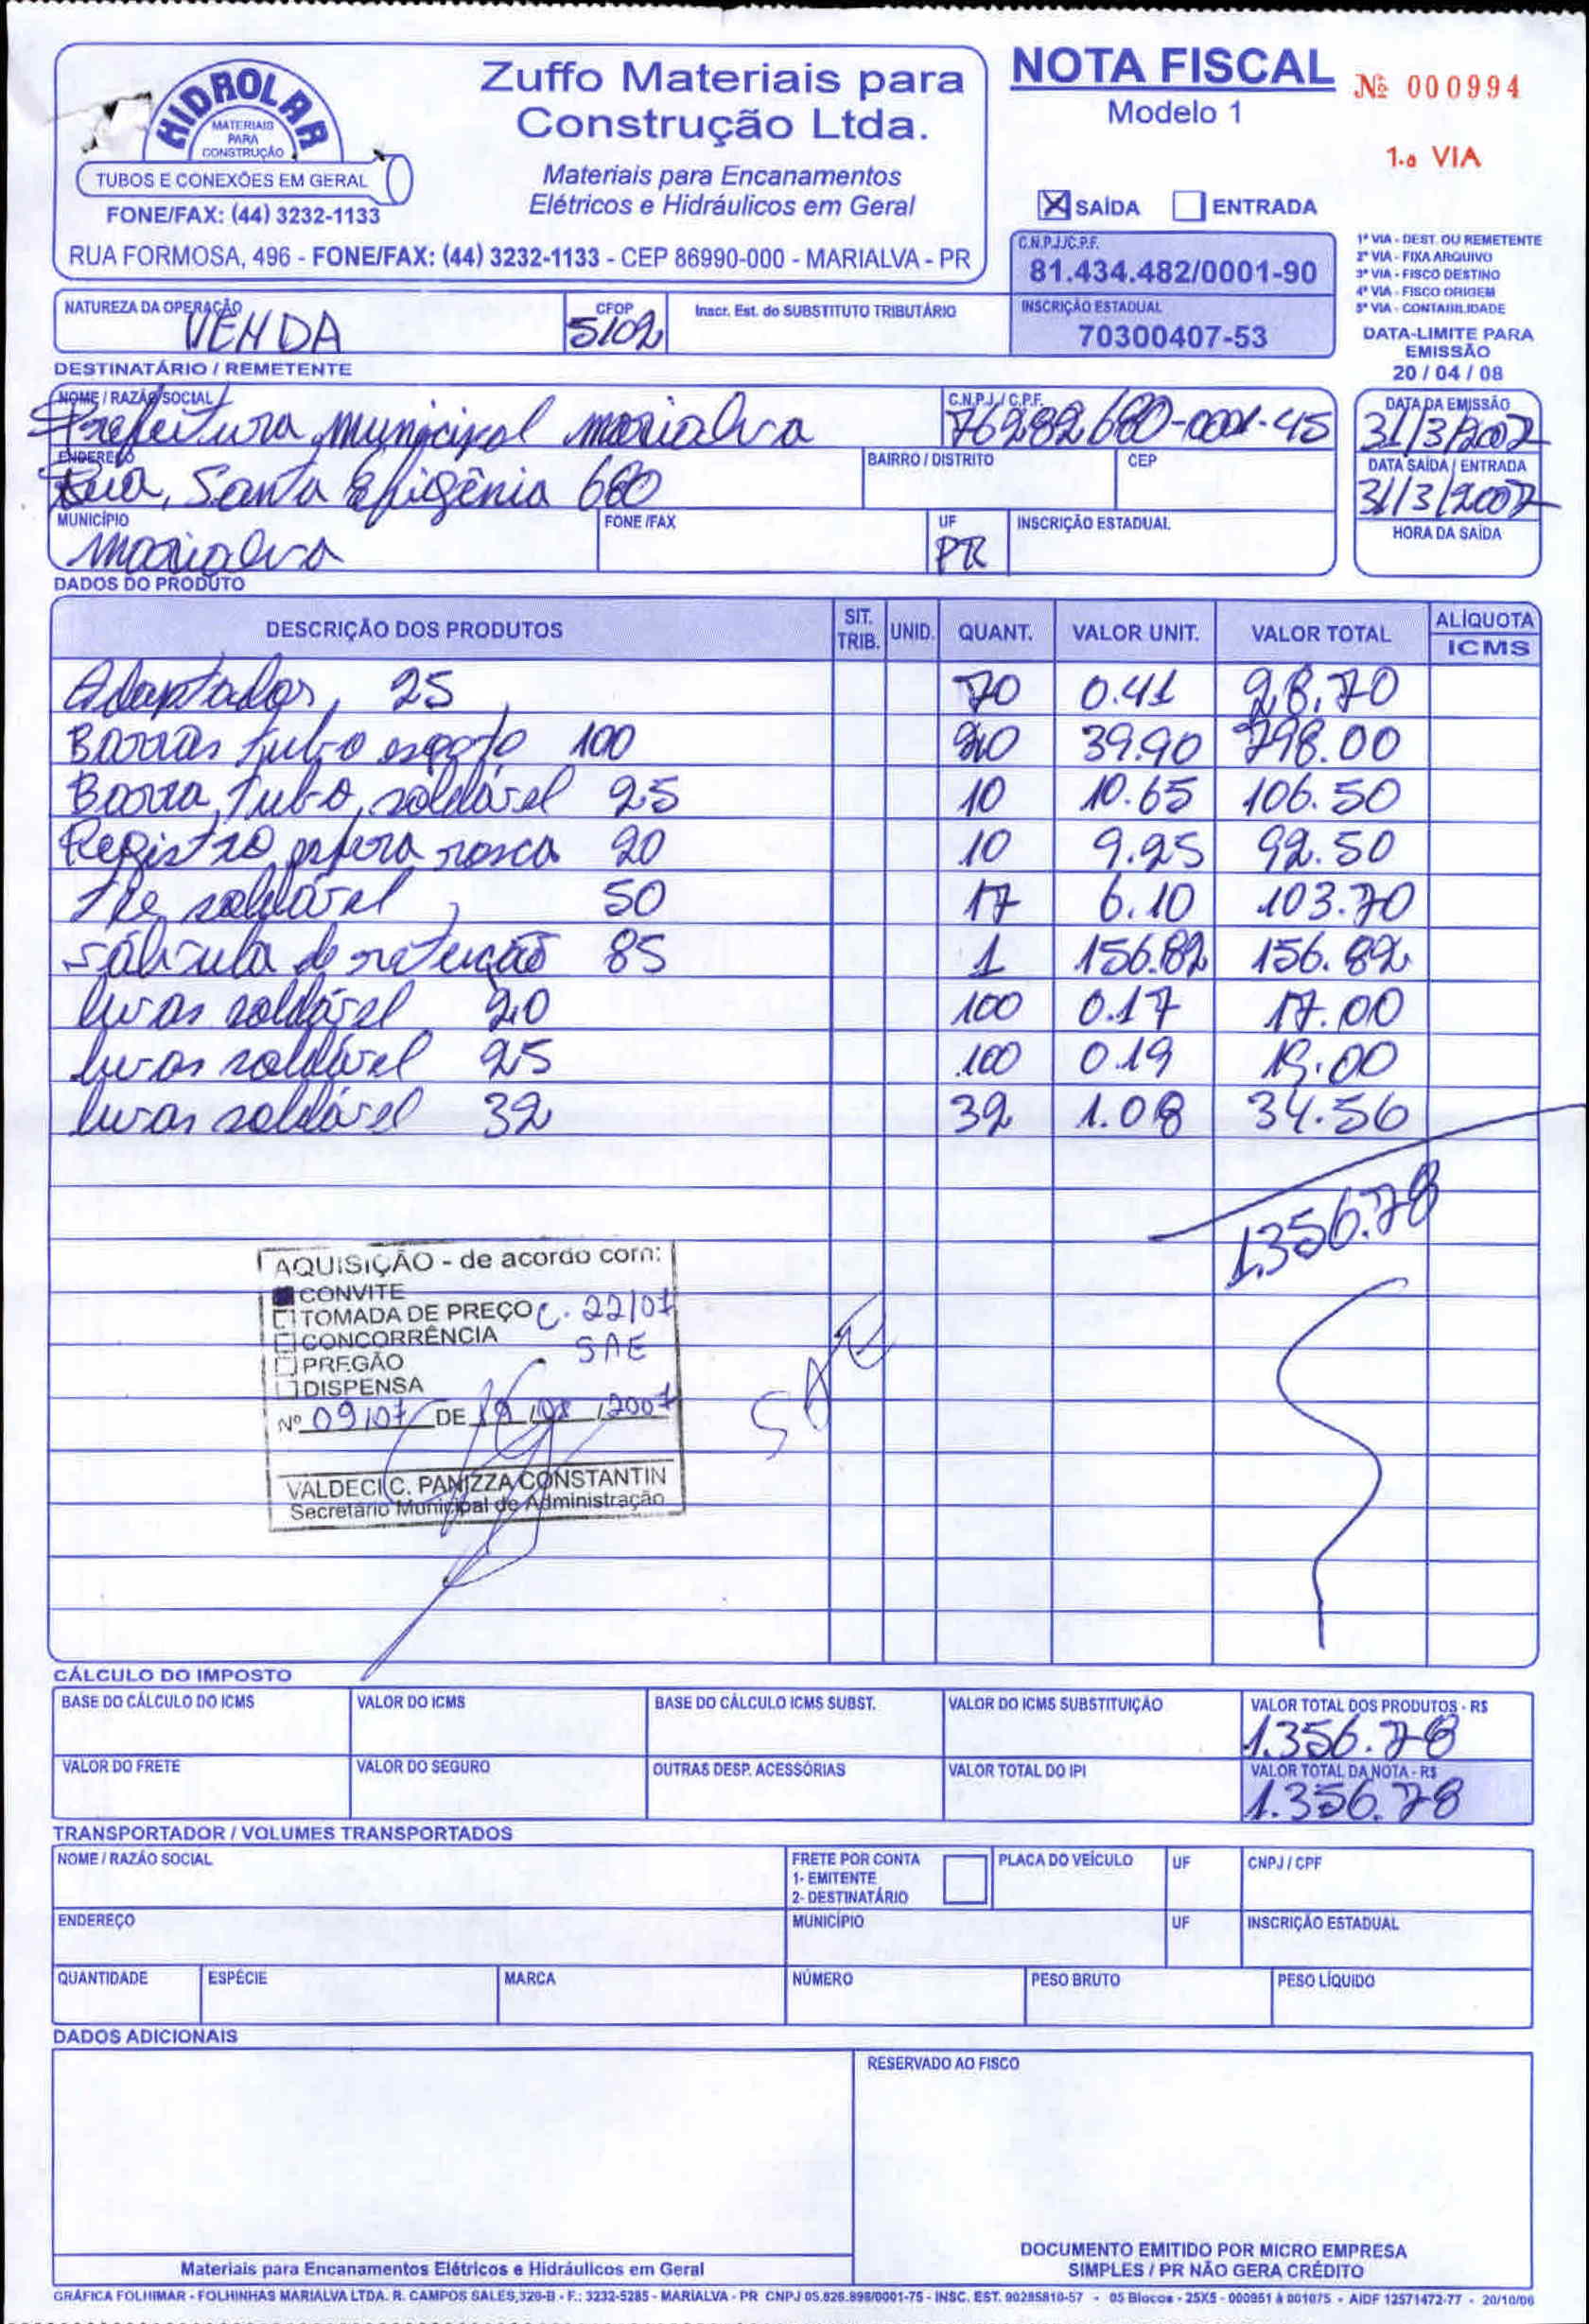 HIDROLAR
MATERIAIS
PARA
CONSTRUÇÃO
TUBOS E CONEXÕES EM GERAL
FONE/FAX: (44) 3232-1133
Zuffo Materiais para
Construção Ltda.
Materiais para Encanamentos
Elétricos e Hidráulicos em Geral
RUA FORMOSA, 496 - FONE/FAX: (44) 3232-1133 - CEP 86990-000 - MARIALVA - PR
NOTA FISCAL Nº 000994
Modelo 1
1.a VIA
X SAÍDA ENTRADA
C.N.P.J./C.P.F.
81.434.482/0001-90
INSCRIÇÃO ESTADUAL
70300407-53
1ª VIA - DEST. OU REMETENTE
2ª VIA - FIXA ARQUIVO
3ª VIA - FISCO DESTINO
4ª VIA - FISCO ORIGEM
5ª VIA - CONTABILIDADE
DATA-LIMITE PARA
EMISSÃO
20 / 04 / 08
NATUREZA DA OPERAÇÃO CFOP Inscr. Est. do SUBSTITUTO TRIBUTÁRIO
VENDA 5102
DESTINATÁRIO / REMETENTE
NOME / RAZÃO SOCIAL C.N.P.J. / C.P.F. DATA DA EMISSÃO
Prefeitura Municipal Marialva 76282680-0001-45 31/3/2007
ENDEREÇO BAIRRO / DISTRITO CEP DATA SAÍDA / ENTRADA
Rua, Santa Efigênia 680 31/3/2007
MUNICÍPIO FONE /FAX UF INSCRIÇÃO ESTADUAL HORA DA SAÍDA
Marialva PR
DADOS DO PRODUTO
DESCRIÇÃO DOS PRODUTOS SIT. TRIB. UNID. QUANT. VALOR UNIT. VALOR TOTAL ALÍQUOTA ICMS
Adaptador 25 70 0.41 28.70
Barras tubo esgoto 100 20 39.90 798.00
Barra tubo soldável 25 10 10.65 106.50
Registro esfera rosca 20 10 9.25 92.50
Tee soldável 50 17 6.10 103.70
válvula de retenção 85 1 156.82 156.82
luvas soldável 20 100 0.17 17.00
luvas soldável 25 100 0.19 19.00
luvas soldável 32 32 1.08 34.56
1.356.78
AQUISIÇÃO - de acordo com:
CONVITE
TOMADA DE PREÇO C. 22/07
CONCORRÊNCIA SAE
PREGÃO
DISPENSA
Nº 09/07 DE / /2007
SAE
VALDECI C. PANIZZA CONSTANTIN
Secretário Municipal de Administração
CÁLCULO DO IMPOSTO
BASE DO CÁLCULO DO ICMS VALOR DO ICMS BASE DO CÁLCULO ICMS SUBST. VALOR DO ICMS SUBSTITUIÇÃO VALOR TOTAL DOS PRODUTOS - R$
1.356.78
VALOR DO FRETE VALOR DO SEGURO OUTRAS DESP. ACESSÓRIAS VALOR TOTAL DO IPI VALOR TOTAL DA NOTA - R$
1.356.78
TRANSPORTADOR / VOLUMES TRANSPORTADOS
NOME / RAZÃO SOCIAL FRETE POR CONTA PLACA DO VEÍCULO UF CNPJ / CPF
1- EMITENTE
2- DESTINATÁRIO
ENDEREÇO MUNICÍPIO UF INSCRIÇÃO ESTADUAL
QUANTIDADE ESPÉCIE MARCA NÚMERO PESO BRUTO PESO LÍQUIDO
DADOS ADICIONAIS
RESERVADO AO FISCO
DOCUMENTO EMITIDO POR MICRO EMPRESA
Materiais para Encanamentos Elétricos e Hidráulicos em Geral SIMPLES / PR NÃO GERA CRÉDITO
GRÁFICA FOLHIMAR - FOLHINHAS MARIALVA LTDA. R. CAMPOS SALES, 320-B - F.: 3232-5285 - MARIALVA - PR CNPJ 05.826.898/0001-75 - INSC. EST. 90285810-57 - 05 Blocos - 25X5 - 000951 à 001075 - AIDF 12571472-77 - 20/10/06